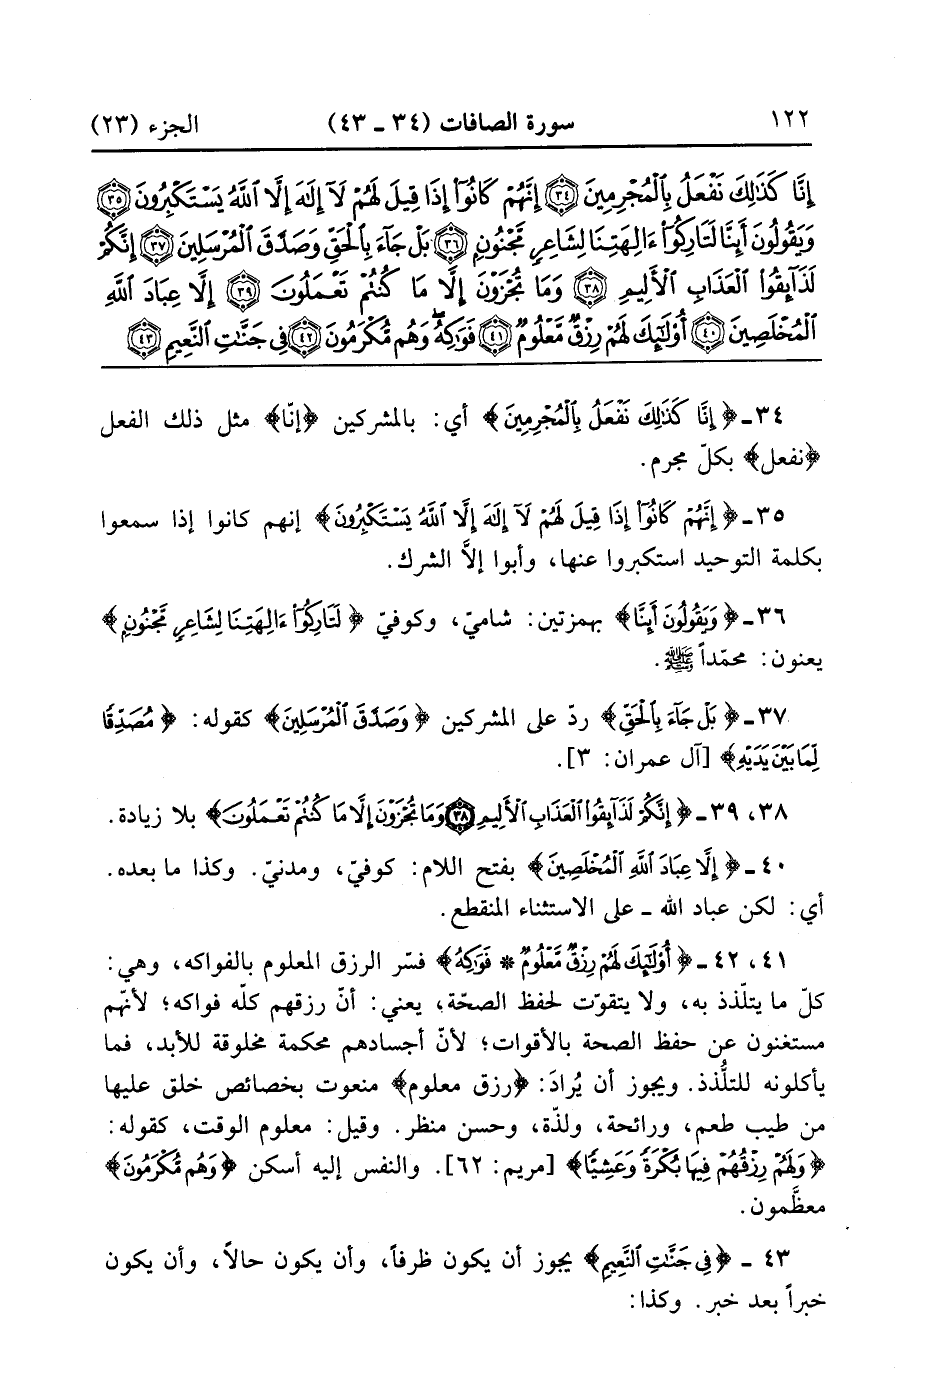 ١٢٢ سورة الصافات (٣٤ ـ ٤٣) الجزء (٢٣)
إِنَّا كَذَٰلِكَ نَفْعَلُ بِٱلْمُجْرِمِينَ ٣٤ إِنَّهُمْ كَانُوٓا۟ إِذَا قِيلَ لَهُمْ لَآ إِلَٰهَ إِلَّا ٱللَّهُ يَسْتَكْبِرُونَ ٣٥
وَيَقُولُونَ أَئِنَّا لَتَارِكُوٓا۟ ءَالِهَتِنَا لِشَاعِرٍ مَّجْنُونٍۭ ٣٦ بَلْ جَآءَ بِٱلْحَقِّ وَصَدَّقَ ٱلْمُرْسَلِينَ ٣٧ إِنَّكُمْ
لَذَآئِقُوا۟ ٱلْعَذَابِ ٱلْأَلِيمِ ٣٨ وَمَا تُجْزَوْنَ إِلَّا مَا كُنتُمْ تَعْمَلُونَ ٣٩ إِلَّا عِبَادَ ٱللَّهِ
ٱلْمُخْلَصِينَ ٤٠ أُو۟لَٰٓئِكَ لَهُمْ رِزْقٌ مَّعْلُومٌ ٤١ فَوَٰكِهُ ۖ وَهُم مُّكْرَمُونَ ٤٢ فِى جَنَّٰتِ ٱلنَّعِيمِ ٤٣
٣٤ ـ ﴿إِنَّا كَذَٰلِكَ نَفْعَلُ بِٱلْمُجْرِمِينَ﴾ أي: بالمشركين ﴿إنّا﴾ مثل ذلك الفعل
﴿نفعل﴾ بكلّ مجرم.
٣٥ ـ ﴿إِنَّهُمْ كَانُوٓا۟ إِذَا قِيلَ لَهُمْ لَآ إِلَٰهَ إِلَّا ٱللَّهُ يَسْتَكْبِرُونَ﴾ إنهم كانوا إذا سمعوا
بكلمة التوحيد استكبروا عنها، وأبوا إلاَّ الشرك.
٣٦ ـ ﴿وَيَقُولُونَ أَئِنَّا﴾ بهمزتين: شاميّ، وكوفيّ ﴿لَتَارِكُوٓا۟ ءَالِهَتِنَا لِشَاعِرٍ مَّجْنُونٍۭ﴾
يعنون: محمّداً ﷺ.
٣٧ ـ ﴿بَلْ جَآءَ بِٱلْحَقِّ﴾ ردّ على المشركين ﴿وَصَدَّقَ ٱلْمُرْسَلِينَ﴾ كقوله: ﴿مُصَدِّقًا
لِّمَا بَيْنَ يَدَيْهِ﴾ [آل عمران: ٣].
٣٨، ٣٩ ـ ﴿إِنَّكُمْ لَذَآئِقُوا۟ ٱلْعَذَابِ ٱلْأَلِيمِ ٣٨ وَمَا تُجْزَوْنَ إِلَّا مَا كُنتُمْ تَعْمَلُونَ﴾ بلا زيادة.
٤٠ ـ ﴿إِلَّا عِبَادَ ٱللَّهِ ٱلْمُخْلَصِينَ﴾ بفتح اللام: كوفيّ، ومدنيّ. وكذا ما بعده.
أي: لكن عباد الله ـ على الاستثناء المنقطع.
٤١، ٤٢ ـ ﴿أُو۟لَٰٓئِكَ لَهُمْ رِزْقٌ مَّعْلُومٌ * فَوَٰكِهُ﴾ فسّر الرزق المعلوم بالفواكه، وهي:
كلّ ما يتلّذذ به، ولا يتقوّت لحفظ الصحّة، يعني: أنّ رزقهم كلّه فواكه؛ لأنّهم
مستغنون عن حفظ الصحة بالأقوات؛ لأنّ أجسادهم محكمة مخلوقة للأبد، فما
يأكلونه للتلُّذذ. ويجوز أن يُرادَ: ﴿رزق معلوم﴾ منعوت بخصائص خلق عليها
من طيب طعم، ورائحة، ولذّة، وحسن منظر. وقيل: معلوم الوقت، كقوله:
﴿وَلَهُمْ رِزْقُهُمْ فِيهَا بُكْرَةً وَعَشِيًّا﴾ [مريم: ٦٢]. والنفس إليه أسكن ﴿وَهُم مُّكْرَمُونَ﴾
معظَّمون.
٤٣ ـ ﴿فِى جَنَّٰتِ ٱلنَّعِيمِ﴾ يجوز أن يكون ظرفاً، وأن يكون حالاً، وأن يكون
خبراً بعد خبر. وكذا: